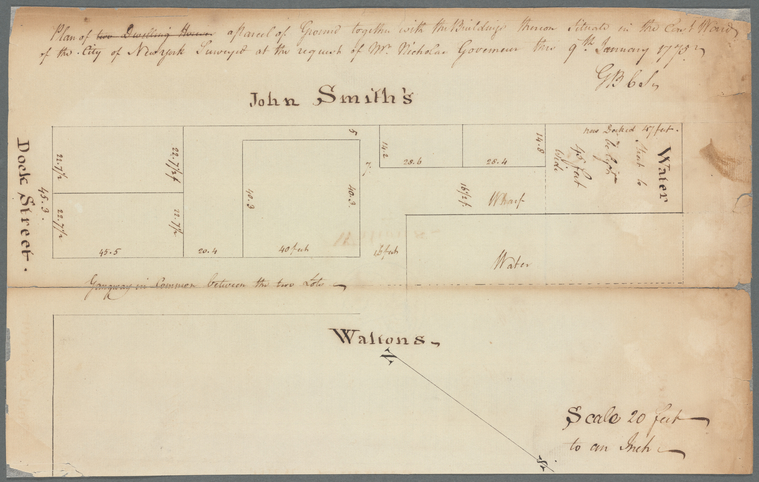 Plan of two Dwelling Houses a Parcel of Ground together with the Buildings thereon Situate in the East Ward
of the City of New York Surveyed at the request of Mr. Nicholas Governeur this 9th January 1775
John Smith's
Dock Street.
45.3.
22.7½
22.7½
22.7½
22.7½
45.5
20.4
40.3
40 feet
40.3
5
14.2
28.6
28.4
14.8
now Docked 147 feet.
Street to
be left
45 feet
Wide
Water
Wharf
Water
Gangway in Common between the two Lots
Waltons
N
S
Scale 20 feet
to an Inch